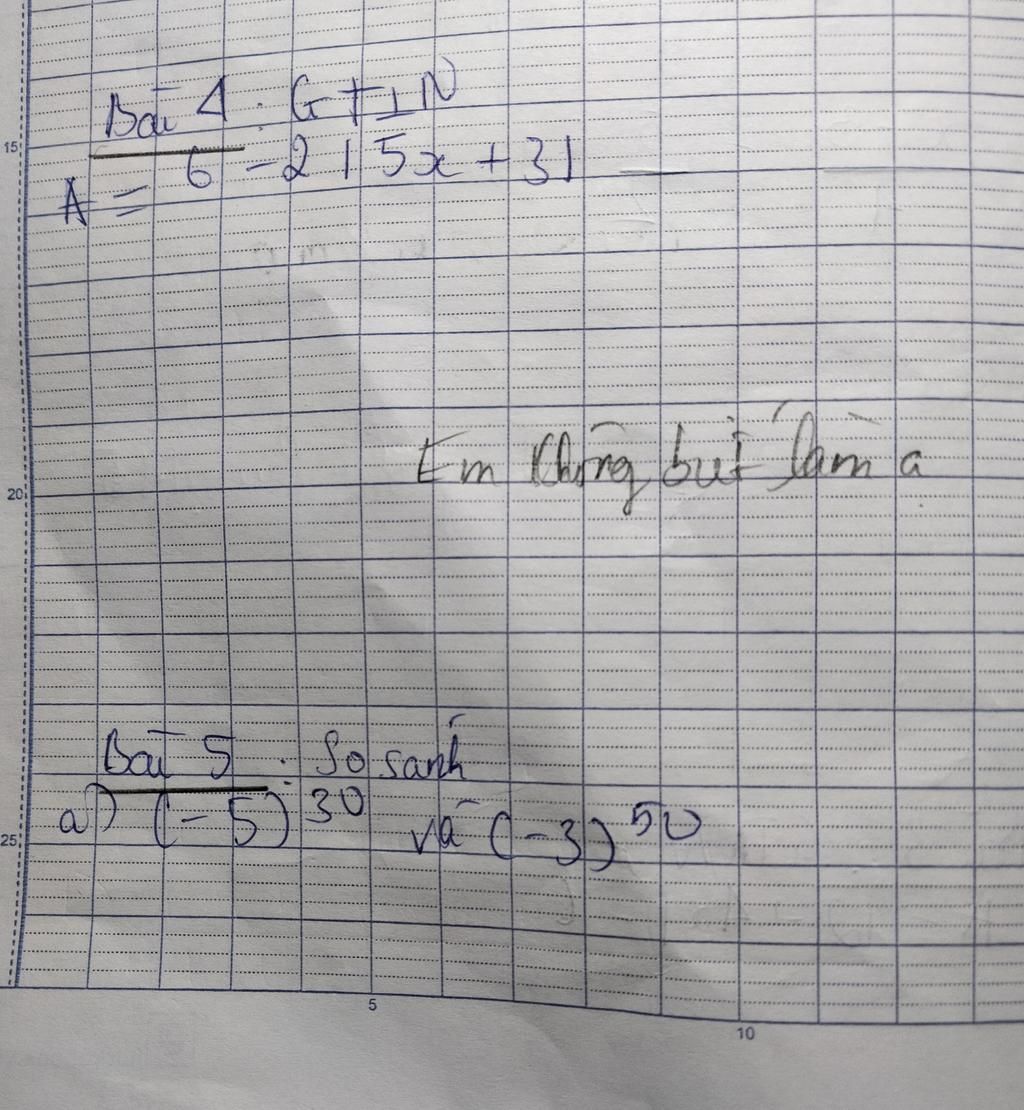 15
Bài 4 : GTLN
A = 6 - 2|5x + 3|
20
Em không biết làm ạ
Bài 5 : So sánh
25
a) (-5)^30 và (-3)^50
5
10